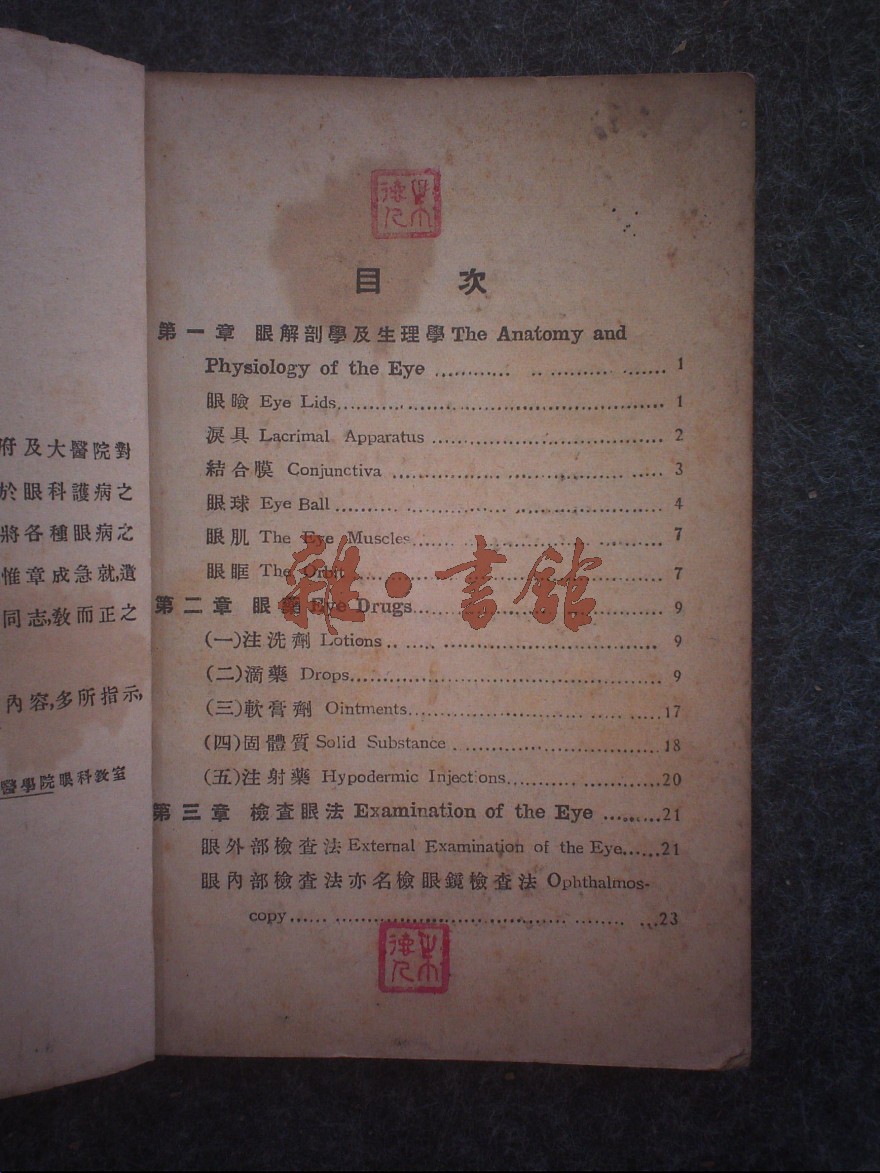 府及大醫院對
於眼科護病之
將各種眼病之
惟章成急就,遺
同志,敎而正之
內容,多所指示,
醫學院眼科敎室
目 次
第一章 眼解剖學及生理學 The Anatomy and
Physiology of the Eye .................. 1
眼瞼 Eye Lids.................. 1
淚具 Lacrimal Apparatus .................. 2
結合膜 Conjunctiva .................. 3
眼球 Eye Ball .................. 4
眼肌 The Eye Muscles.................. 7
眼眶 The Orbit .................. 7
第二章 眼藥 Eye Drugs.................. 9
(一)注洗劑 Lotions .................. 9
(二)滴藥 Drops.................. 9
(三)軟膏劑 Ointments..................17
(四)固體質 Solid Substance ..................18
(五)注射藥 Hypodermic Injections..................20
第三章 檢查眼法 Examination of the Eye .........21
眼外部檢查法 External Examination of the Eye......21
眼內部檢查法亦名檢眼鏡檢查法 Ophthalmos-
copy..................23
雜·書館